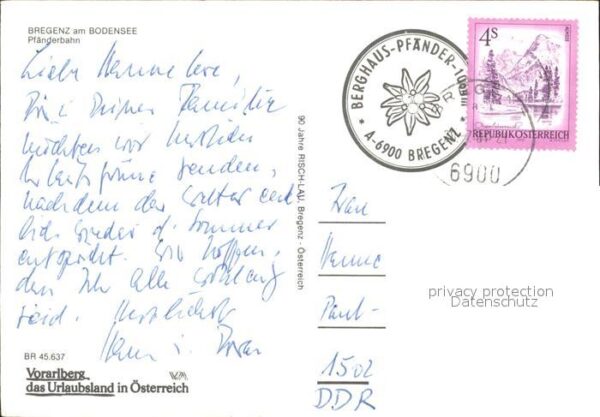 BREGENZ am BODENSEE
Pfänderbahn
Liebe Hannelore,
Dir i Deiner Familie
möchten wir herzliche
Urlaubsgrüße senden,
nachdem das Wetter end
lich wieder d. Sommer
entspricht. Wir hoffen,
daß Ihr alle wohlauf
seid. Herzlichst
BR 45.637
Vorarlberg
das Urlaubsland in Österreich
90 Jahre RISCH-LAU, Bregenz - Österreich
BERGHAUS-PFÄNDER
* A-6900 BREGENZ *
4S
REPUBLIK ÖSTERREICH
6900
Frau
Hanne
Paul-
1502
DDR
privacy protection
Datenschutz